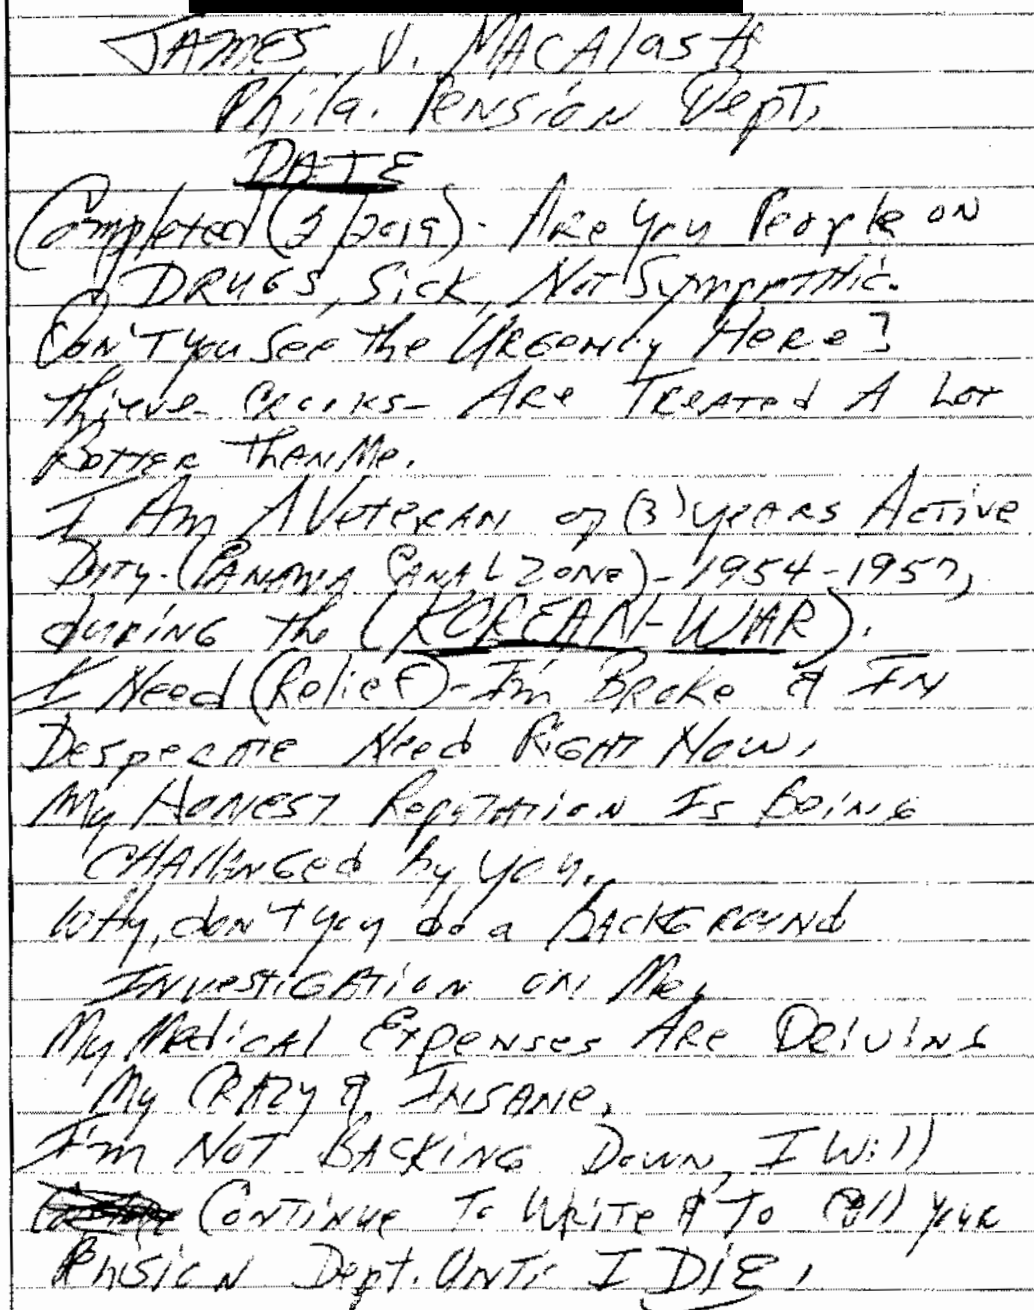 JAMES V. MACAlasH
Phila. PENSiON Dept,
DATE
Completed (3/2019) - ARe You People ON
DRUGS, Sick, Not Sympathic.
Don'T you See the URGenciy HeRe?
Thieve- CRooks- ARe TReaTed A LoT
BeTTER THAN Me.
I Am A VeteRAN of (3) yeARS AcTive
DuTy-(PANAMA CANAL ZONe)-1954-1957,
duRiNG The (KOREAN-WAR).
I Need (Relief)-I'm BRoke & IN
DespeRATe Need RiGHT Now,
My HoNesT RepuTATioN Is BeiNG
CHAllANGed by you.
WHy, don'T you do a BACKGROUND
INvestiGATioN oN Me,
My MedicAl ExpeNses ARe DRIVING
My CRAzy & INSANe,
I'm NoT BACKiNG DowN, I Will
CoNTiNue To WRiTe & To CAll youR
PeNsioN Dept. UNTiL I DIE,